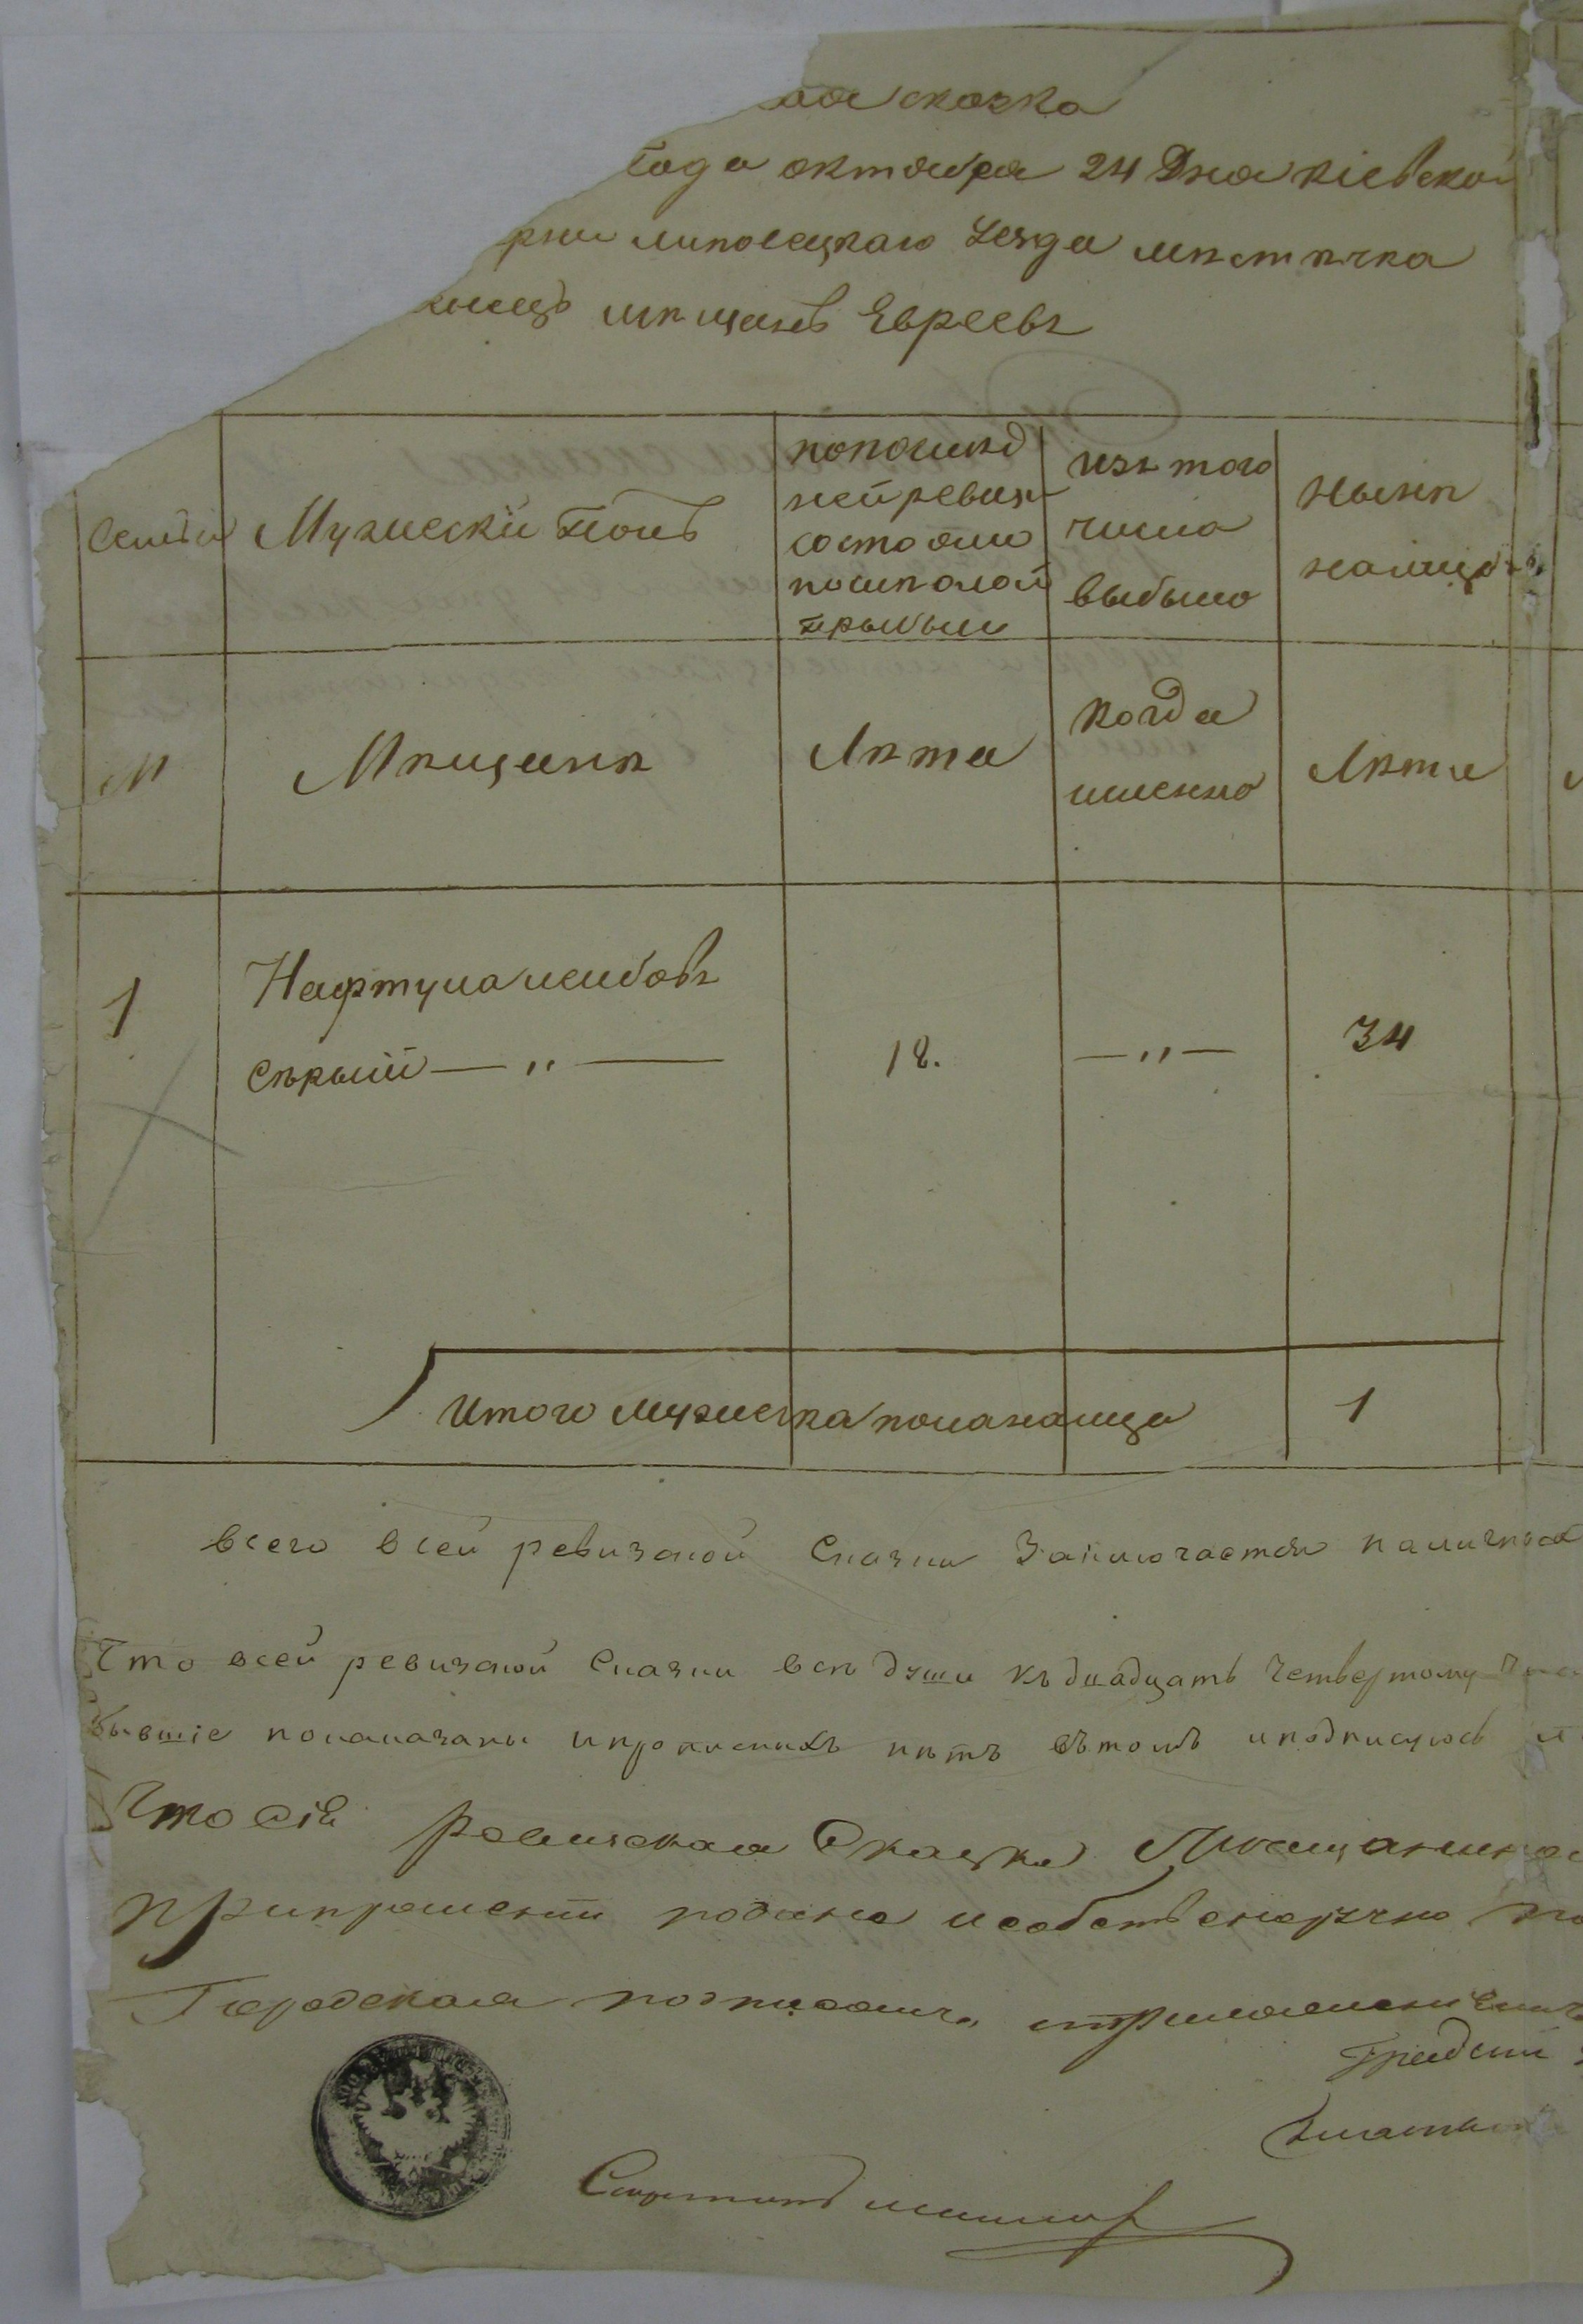 ная сказка
года октября 24 Дня кіевской
рніи липовецкаго Уезда мѣстѣчка
нецъ мѣщанъ Евреевъ
Семьи
Мужескій Полъ
попослѣд
ней ревизіи
состояло
и послѣ оной
прибыли
изъ того
числа
выбыло
нынѣ
налицо
№
Мѣщанѣ
Лѣта
когда
именно
Лѣта
1
Нафтула лейбовъ
Сѣрый — „ —
18.
— „ —
34
Итого мужеска пола налицо
1
всего всей ревизской Сказки Заключается наличныхъ
Что всей ревизской Сказки всѣ души къ двадцать четвертому
бывшіе показаны и прописныхъ нѣтъ въ томъ и подписуюсь
Что Сія Ревизская Сказка
подана и собственоручно
Городская
Градскій